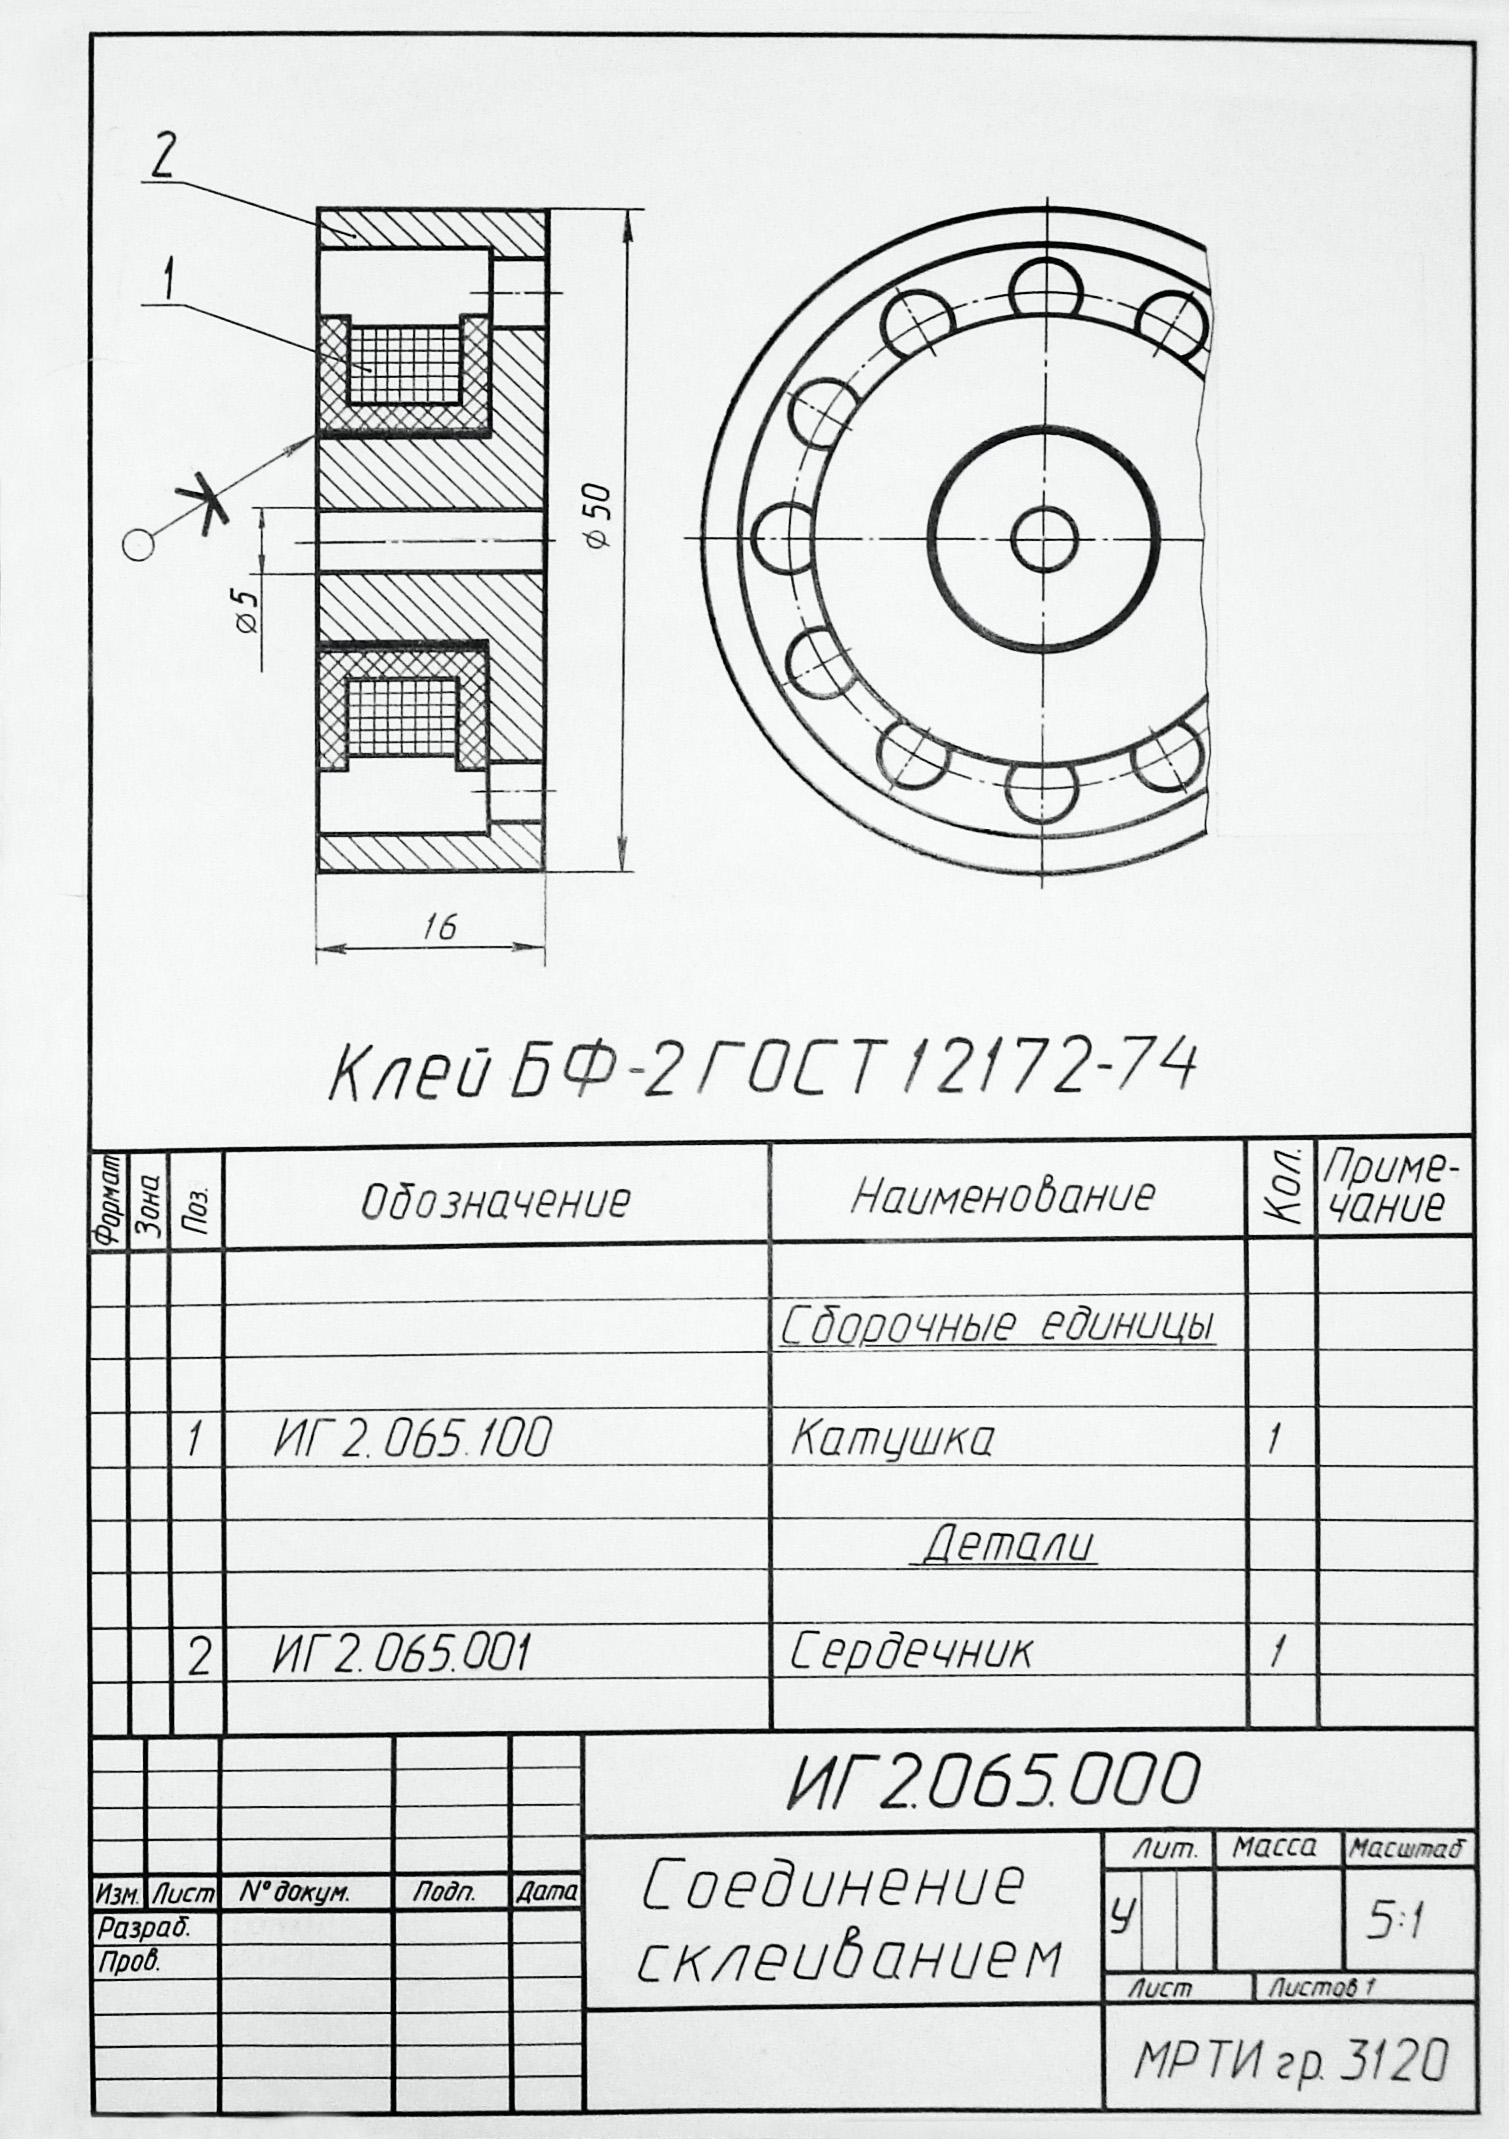 2
1
⌀50
⌀5
16
Клей БФ-2 ГОСТ 12172-74
Формат Зона Поз. Обозначение Наименование Кол. Приме-
чание
Сборочные единицы
1 ИГ2.065.100 Катушка 1
Детали
2 ИГ2.065.001 Сердечник 1
ИГ2.065.000
Изм. Лист № докум. Подп. Дата
Разраб.
Пров.
Соединение
склеиванием
Лит. Масса Масштаб
У 5:1
Лист Листов 1
МРТИ гр. 3120